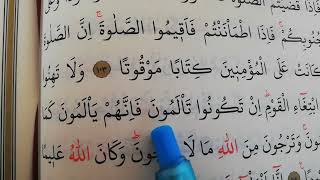 فَاِذَا قَضَيْتُمُ
جُنُوبِكُمْ فَاِذَا اطْمَأْنَنْتُمْ فَاَقِيمُوا الصَّلٰوةَۚ اِنَّ الصَّلٰوةَ
كَانَتْ عَلَى الْمُؤْمِنِينَ كِتَابًا مَوْقُوتًا ١٠٣ وَلَا تَهِنُوا
ابْتِغَٓاءِ الْقَوْمِۜ اِنْ تَكُونُوا تَأْلَمُونَ فَاِنَّهُمْ يَأْلَمُونَ كَمَا
وَتَرْجُونَ مِنَ اللّٰهِ مَا لَا وَكَانَ اللّٰهُ عَلِيمًا